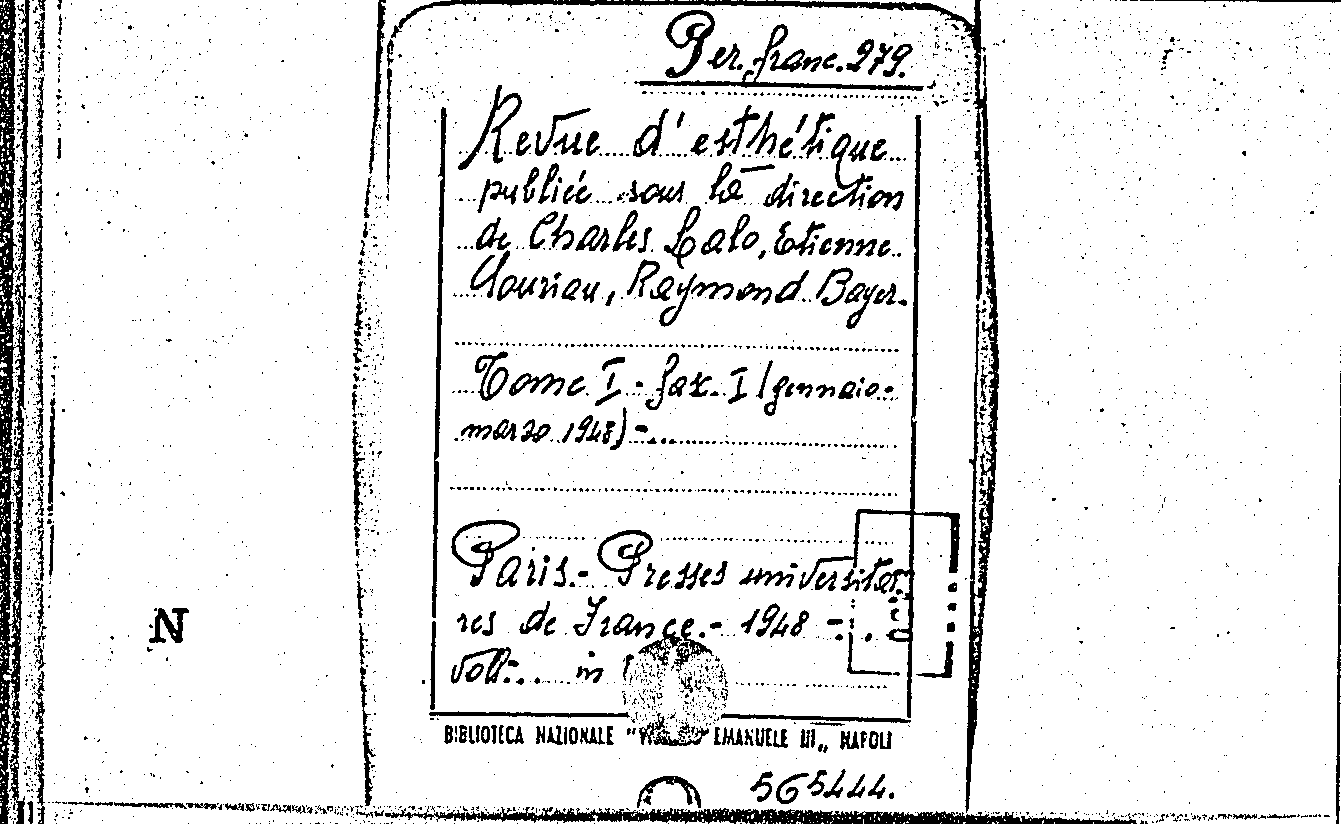 Per. franc. 279.
Revue d'esthétique
publiée sous la direction
de Charles Lalo, Etienne
Souriau, Raymond Bayer.
Tome I - fasc. I (gennaio-
marzo 1948) - ...
Paris. - Presses universitai
res de France. - 1948 - ...
voll. ... in
N
BIBLIOTECA NAZIONALE " EMANUELE III„ NAPOLI
565444.